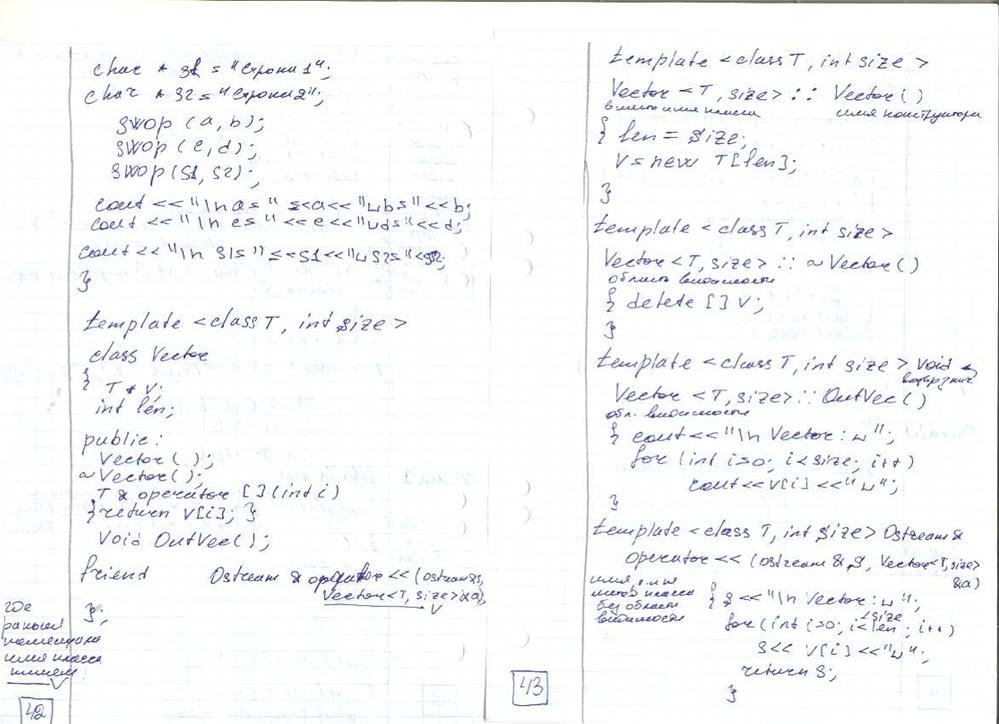 char * s1 = "строка1";
char * s2 = "строка2";
swop (a, b);
swop (c, d);
swop (s1, s2);
cout << "\n a= " << a << "⌴b=" << b;
cout << "\n c= " << c << "⌴d=" << d;
cout << "\n s1= " << s1 << "⌴s2=" << s2;
}
template <class T, int size>
class Vector
{ T * v;
int len;
public:
Vector ( );
~Vector ( );
T & operator [] (int i)
{ return v[i]; }
void OutVec( );
friend Ostream & operator << (ostream&s,
Vector<T, size>&a);
};
где
раньше
имя класса
пишем
42
template <class T, int size>
Vector <T, size> :: Vector ( )
вместо имя класса имя конструктора
{ len = size;
v = new T[len];
}
template <class T, int size>
Vector <T, size> :: ~Vector ( )
область видимости
{ delete [] v;
}
template <class T, int size> void
Vector <T, size> :: OutVec ( )
обл. видимости
{ cout << "\n Vector: ⌴";
for (int i=0; i<size; i++)
cout << v[i] << "⌴";
}
template <class T, int size> Ostream &
operator << (ostream & s, Vector<T, size>
&a)
класса
без области
видимости
{ s << "\n Vector: ⌴";
<size
for (int i=0; i<len; i++)
s << v[i] << "⌴";
return s;
}
43